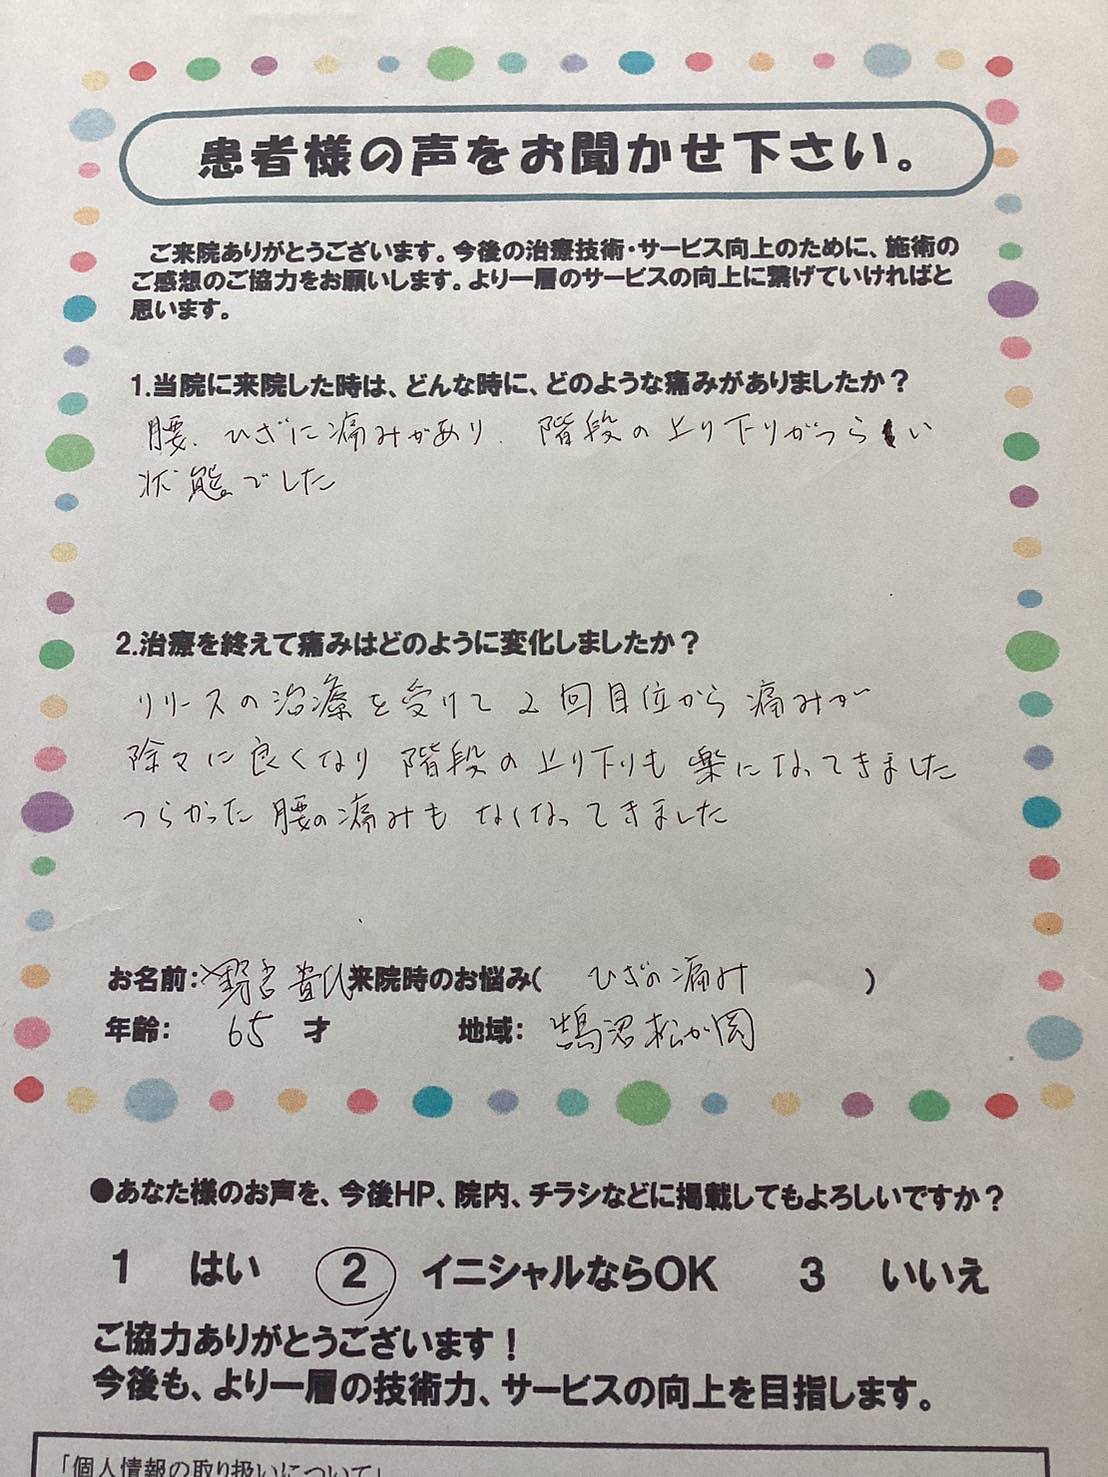 患者様の声をお聞かせ下さい。
ご来院ありがとうございます。今後の治療技術・サービス向上のために、施術の
ご感想のご協力をお願いします。より一層のサービスの向上に繋げていければと
思います。
1.当院に来院した時は、どんな時に、どのような痛みがありましたか？
腰、ひざに痛みがあり、階段の上り下りがつらい
状態でした
2.治療を終えて痛みはどのように変化しましたか？
リリースの治療を受けて2回目位から痛みが
除々に良くなり階段の上り下りも楽になってきました
つらかった腰の痛みもなくなってきました
お名前: 来院時のお悩み( ひざの痛み )
年齢: 65 才 地域: 鵠沼松が岡
●あなた様のお声を、今後HP、院内、チラシなどに掲載してもよろしいですか？
1 はい 2 イニシャルならOK 3 いいえ
ご協力ありがとうございます！
今後も、より一層の技術力、サービスの向上を目指します。
「個人情報の取り扱いについて」